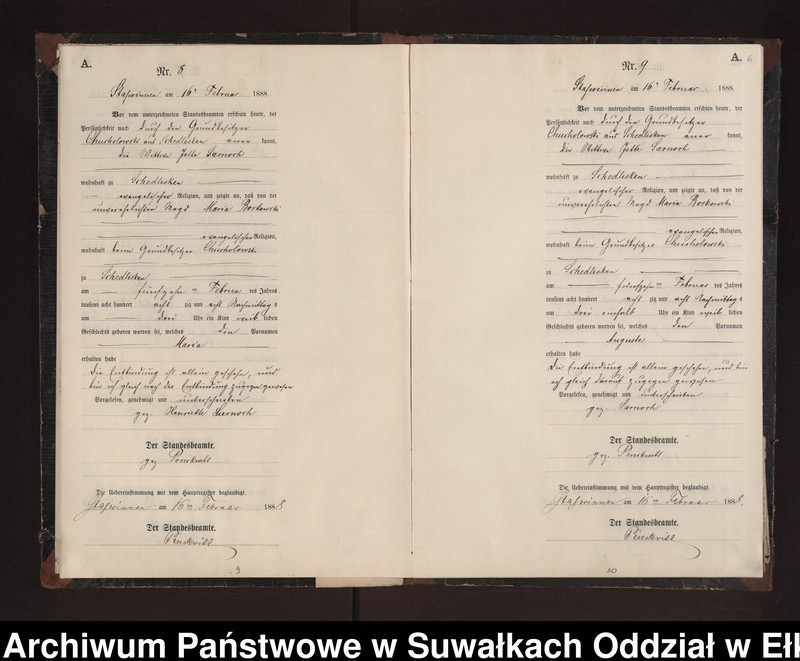 A.
Nr. 8
am 16ten Februar 1888.
Vor dem unterzeichneten Standesbeamten erschien heute, der
Persönlichkeit nach durch den Grundbesitzer
aus Schedlisken aner kannt,
die Wittwe Jette Sarnoch
wohnhaft zu Schedlisken
evangelischer Religion, und zeigte an, daß von der
unverehelichten Magd Maria Borkowski
evangelischer Religion,
wohnhaft beim Grundbesitzer
zu Schedlisken
am fünfzehn ten Februar des Jahres
tausend acht hundert acht zig und acht Nachmittag s
um drei Uhr ein Kind weib lichen
Geschlechts geboren worden sei, welches den Vornamen
Maria
erhalten habe
Die Entbindung ist allein geschehen, und
bin ich gleich nach der Entbindung zugegen gewesen
Vorgelesen, genehmigt und unterschrieben
gez. Sarnoch
Der Standesbeamte.
gez.
Die Uebereinstimmung mit dem Hauptregister beglaubigt
am 16ten Februar 1888
Der Standesbeamte.
9
A. 6
Nr. 9
am 16ten Februar 1888.
Vor dem unterzeichneten Standesbeamten erschien heute, der
Persönlichkeit nach durch den Grundbesitzer
aus Schedlisken aner kannt,
die Wittwe Jette Sarnoch
wohnhaft zu Schedlisken
evangelischer Religion, und zeigte an, daß von der
unverehelichten Magd Maria Borkowski
evangelischer Religion,
wohnhaft beim Grundbesitzer
zu Schedlisken
am fünfzehn ten Februar des Jahres
tausend acht hundert acht zig und acht Nachmittag s
um drei einhalb Uhr ein Kind weib lichen
Geschlechts geboren worden sei, welches den Vornamen
Auguste
erhalten habe
Die Entbindung ist allein geschehen, und bin
ich gleich darauf zugegen gewesen
Vorgelesen, genehmigt und unterschrieben
gez. Sarnoch
Der Standesbeamte.
gez.
Die Uebereinstimmung mit dem Hauptregister beglaubigt.
am 16ten Februar 1888.
Der Standesbeamte.
10
Archiwum Państwowe w Suwałkach Oddział w Ełk